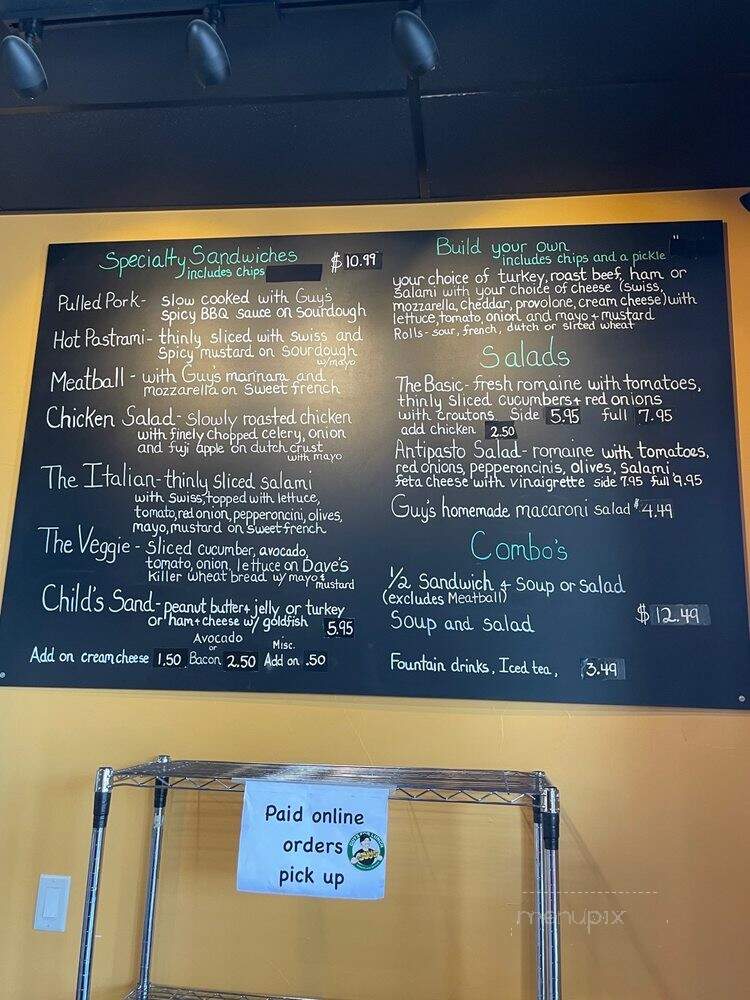 Specialty Sandwiches
includes chips
$10.99
Pulled Pork - slow cooked with Guy's
spicy BBQ sauce on Sourdough
Hot Pastrami - thinly sliced with swiss and
spicy mustard on sourdough
w/mayo
Meatball - with Guy's marinara and
mozzarella on Sweet french
Chicken Salad - slowly roasted chicken
with finely chopped celery, onion
and fuji apple on dutch crust
with mayo
The Italian - thinly sliced salami
with Swiss, topped with lettuce,
tomato, red onion, pepperoncini, olives,
mayo, mustard on sweet french
The Veggie - sliced cucumber, avocado,
tomato, onion, lettuce on Dave's
killer wheat bread w/ mayo + mustard
Child's Sand - peanut butter + jelly or turkey
or ham + cheese w/ goldfish 5.95
Add on cream cheese 1.50 Avocado or Bacon 2.50 Misc. Add on .50
Build your own "
includes chips and a pickle
your choice of turkey, roast beef, ham or
salami with your choice of cheese (swiss,
mozzarella, cheddar, provolone, cream cheese) with
lettuce, tomato, onion and mayo + mustard
Rolls - sour, french, dutch or sliced wheat
Salads
The Basic - fresh romaine with tomatoes,
thinly sliced cucumbers + red onions
with croutons Side 5.95 full 7.95
add chicken 2.50
Antipasto Salad - romaine with tomatoes,
red onions, pepperoncinis, olives, salami
feta cheese with vinaigrette side 7.95 full 9.95
Guy's homemade macaroni salad $4.49
Combo's
1/2 Sandwich + Soup or Salad
(excludes Meatball)
Soup and salad
$12.49
Fountain drinks, Iced tea, 3.49
Paid online
orders
pick up
menupix